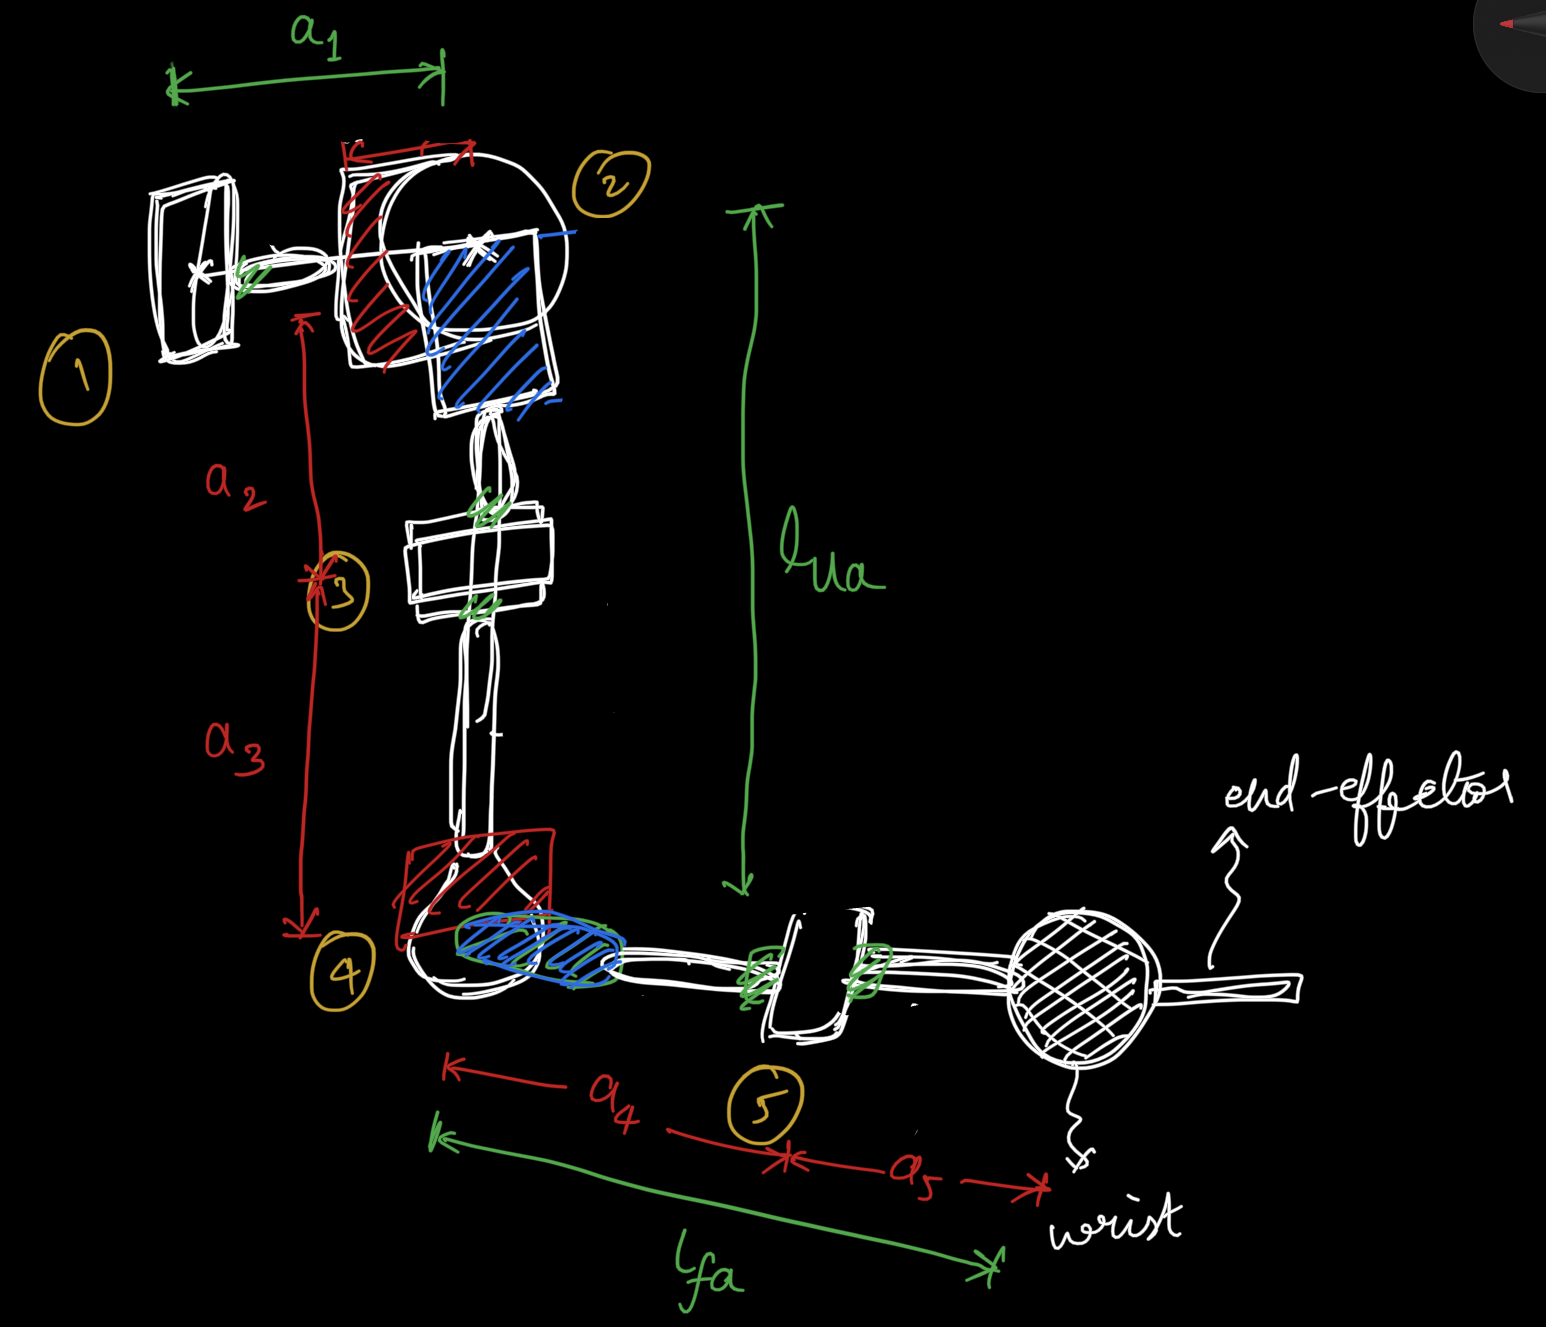 a1
2
1
a2
lua
3
a3
end-effector
4
a4
5
a5
wrist
lfa